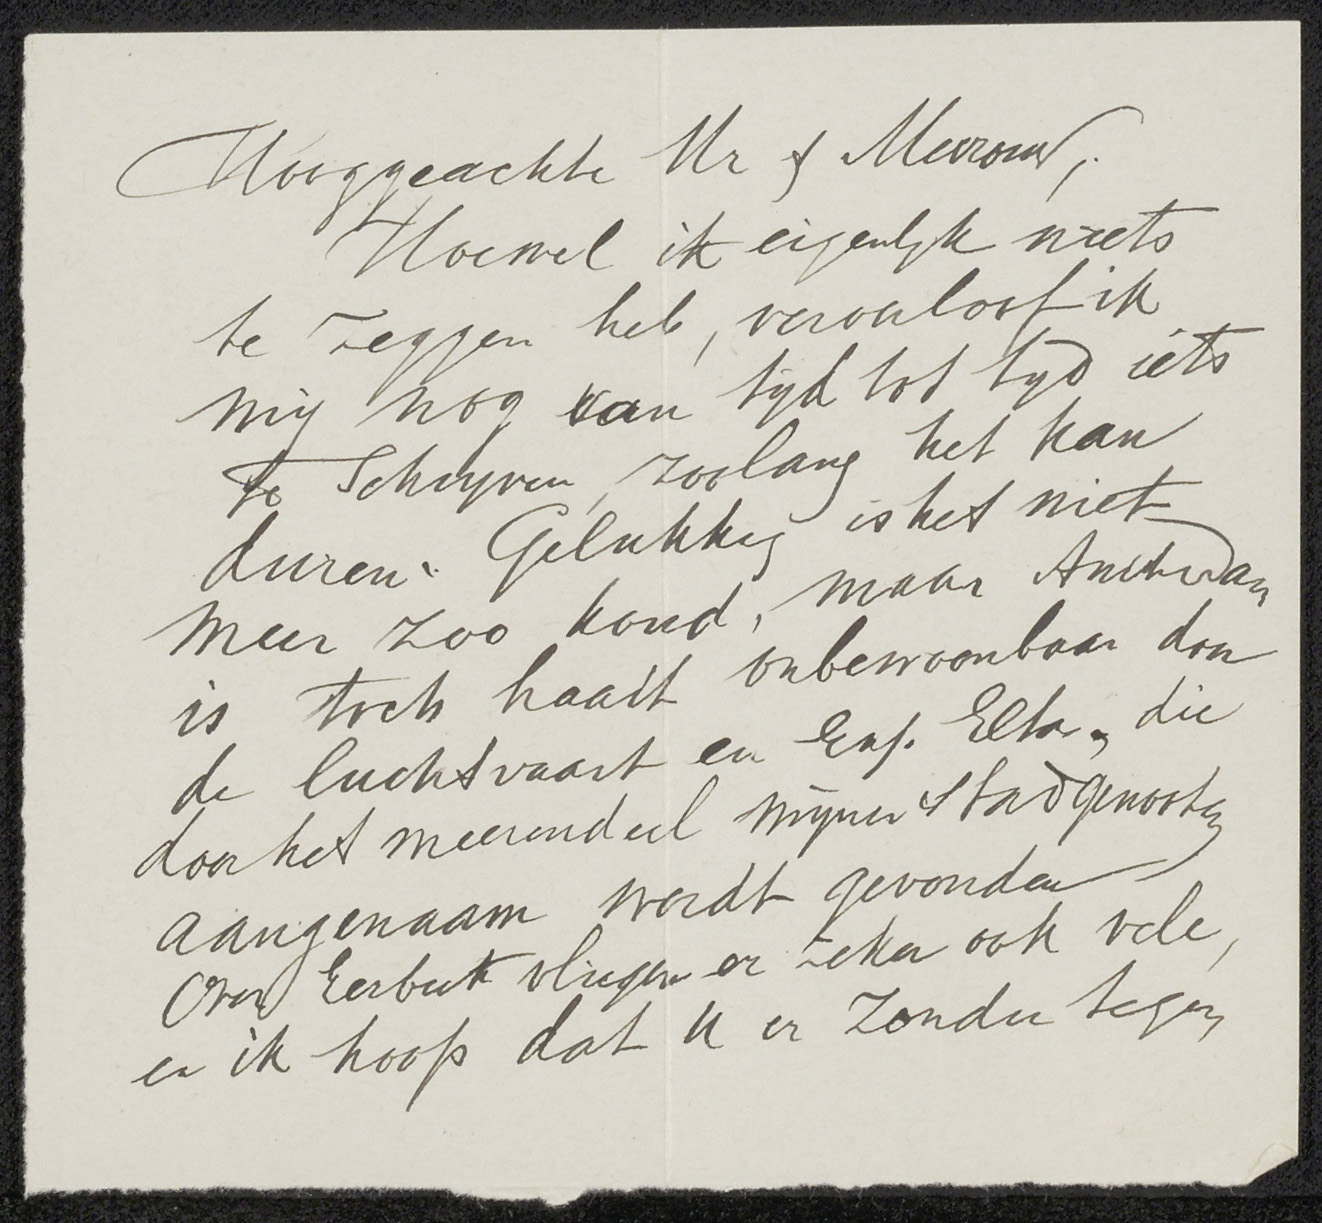 Hooggeachte Mr & Mevrouw,
Hoewel ik eigenlyk niets
te zeggen heb, veroorloof ik
my nog van tyd tot tyd iets
te schryven, zoolang het kan
duren. Gelukkig is het niet
meer zoo koud, maar Amsterdam
is toch haast onbewoonbaar door
de luchtvaart en Elta, die
door het meerendeel mijner stadgenooten
aangenaam wordt gevonden
Over Eerbeek vliegen er zeker ook vele,
en ik hoop dat U er zonder tegen